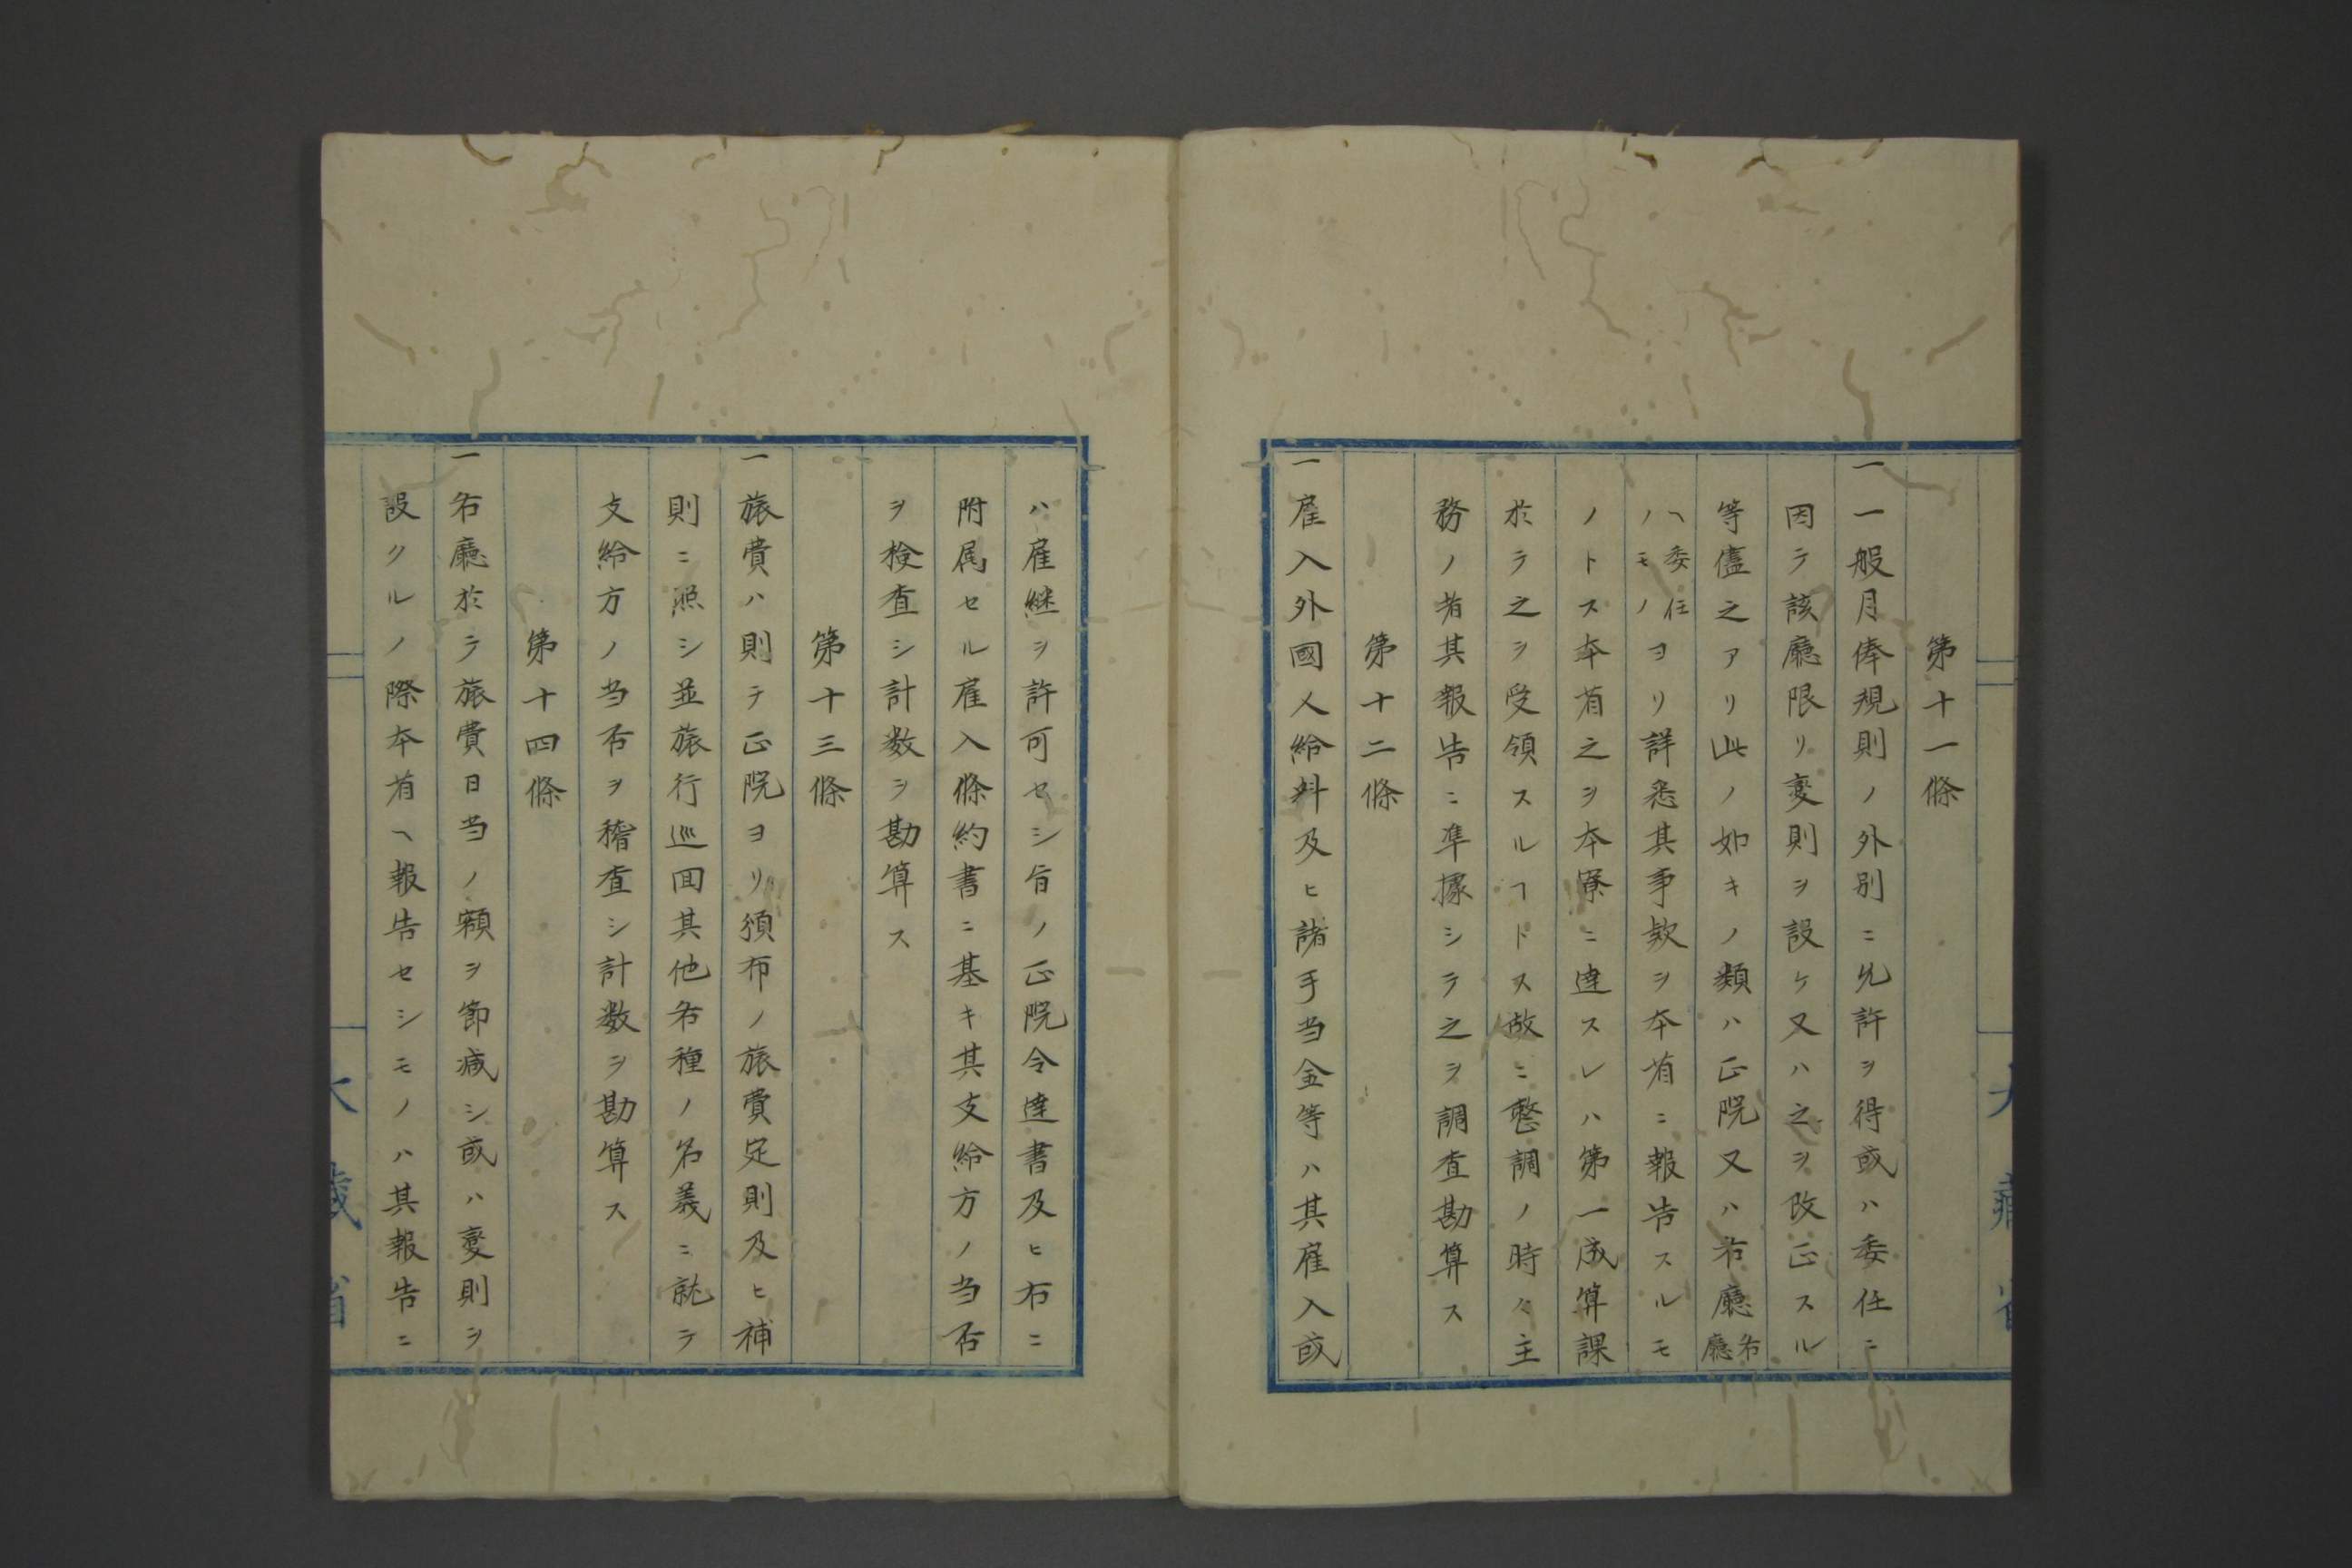 第十一條
一一般月俸規則ノ外別ニ允許ヲ得或ハ委任ニ
因テ該廳限リ変則ヲ設ケ又ハ之ヲ改正スル
等儘之アリ此ノ如キノ類ハ正院又ハ各廳各廳
ヘ委任ノモノヨリ詳悉其事款ヲ本省ニ報告スルモ
ノトス本省之ヲ本寮ニ達スレハ第一成算課
於テ之ヲ受領スルヿトス故ニ整調ノ時々主
務ノ者其報告ニ凖據シテ之ヲ調査勘算ス
第十二條
一雇入外國人給料及ヒ諸手当金等ハ其雇入或
ハ雇継ヲ許可セシ旨ノ正院令達書及ヒ右ニ
附属セル雇入條約書ニ基キ其支給方ノ当否
ヲ検査シ計数ヲ勘算ス
第十三條
一旅費ハ則テ正院ヨリ頒布ノ旅費定則及ヒ補
則ニ照シ並旅行巡回其他各種ノ名義ニ就テ
支給方ノ当否ヲ稽査シ計数ヲ勘算ス
第十四條
一各廳於テ旅費日当ノ額ヲ節減シ或ハ変則ヲ
設クルノ際本省ヘ報告セシモノハ其報告ニ
大藏省